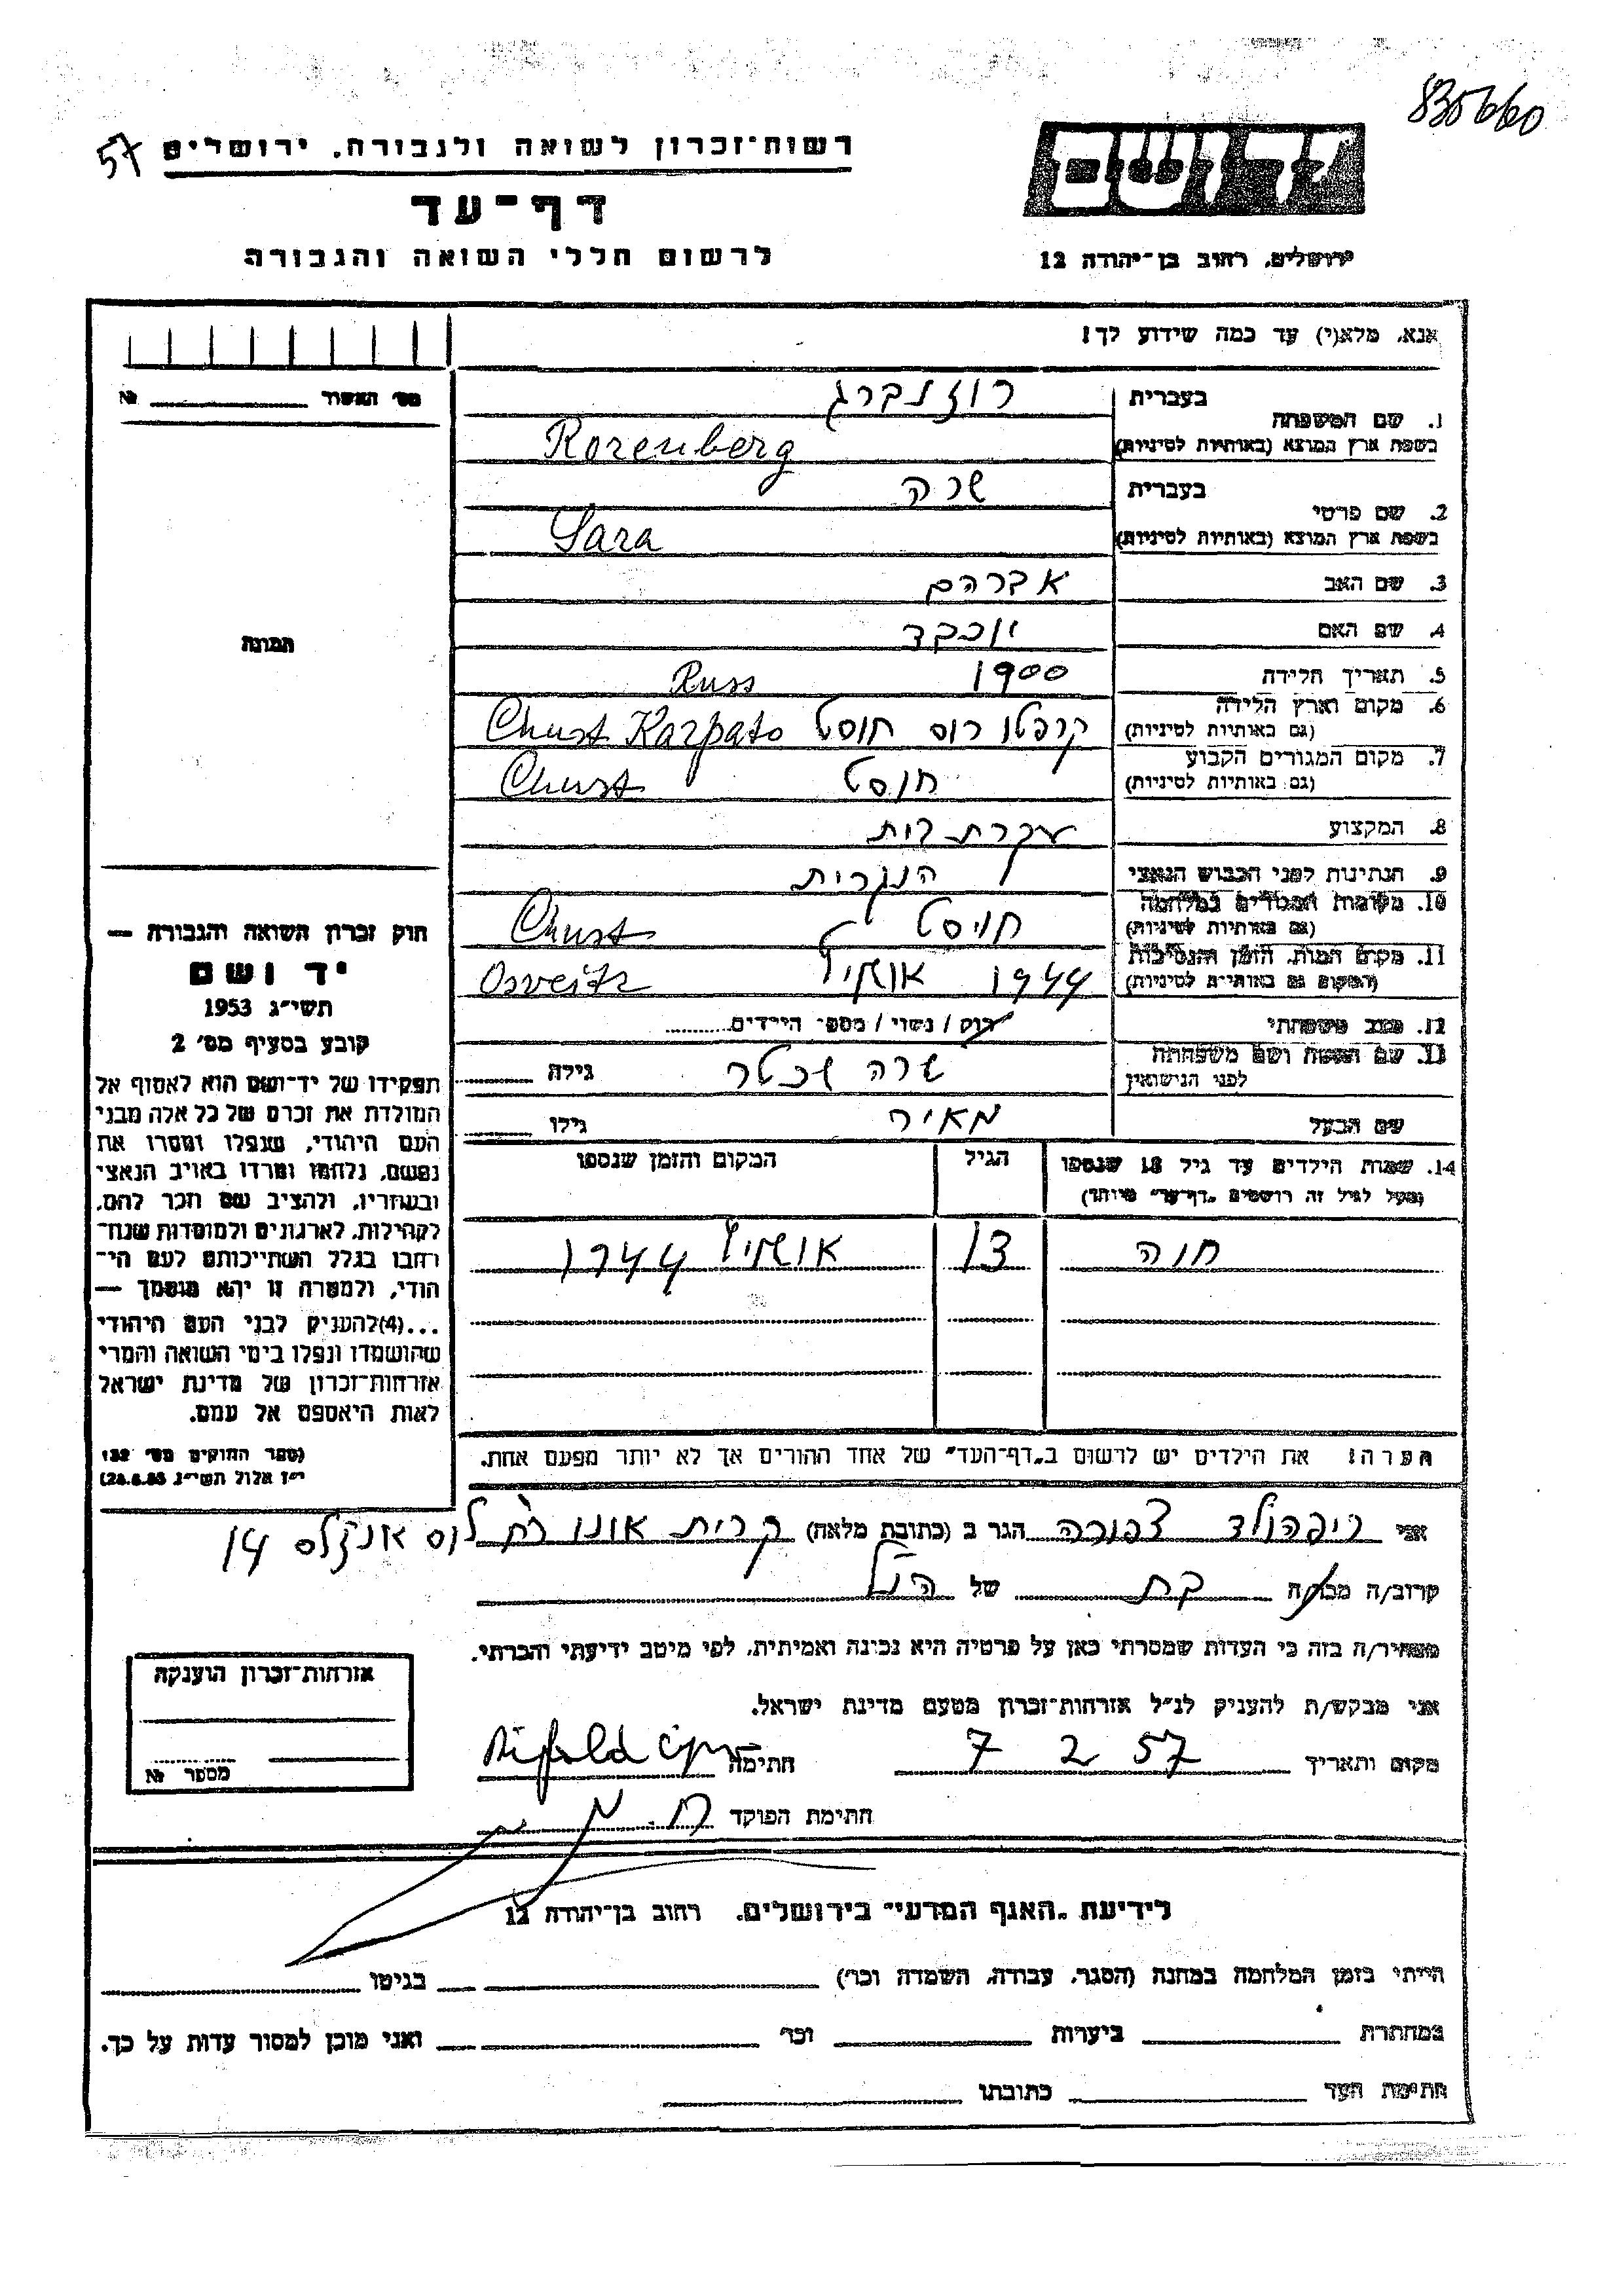 830660
57
רשות־זכרון לשואה ולגבורה, ירושלים
דף־עד
לרשום חללי השואה והגבורה
יד ושם
ירושלים, רחוב בן־יהודה 12
אנא, מלא(י) עד כמה שידוע לך!
מס׳ האשור №
1. שם המשפחה בעברית רוזנברג
בשפת ארץ המוצא (באותיות לטיניות) Rozenberg
2. שם פרטי בעברית שרה
בשפת ארץ המוצא (באותיות לטיניות) Sara
3. שם האב אברהם
4. שם האם יוכבד
5. תאריך הלידה 1900 Russ
6. מקום וארץ הלידה (גם באותיות לטיניות) קרפטו רוס חוסט Chust Karpato
7. מקום המגורים הקבוע (גם באותיות לטיניות) חוסט Chust
8. המקצוע עקרת בית
9. הנתינות לפני הכבוש הנאצי הנגרית
10. מקומות המגורים במלחמה (גם באותיות לטיניות) חוסט Chust
11. מקום המות, הזמן והנסיבות (המקום גם באותיות לטיניות) 1944 אושויץ Osveitz
12. מצב משפחתי רוק / נשוי / מספר הילדים
13. שם האשה ושם משפחתה לפני הנישואין שרה שכטר גילה
שם הבעל מאיר גילו
14. שמות הילדים עד גיל 18 שנספו הגיל המקום והזמן שנספו
(מעל לגיל זה רושמים "דף־עד" מיוחד)
חוה 13 אושויץ 1944
הערה: את הילדים יש לרשום ב„דף־העד" של אחד ההורים אך לא יותר מפעם אחת.
תמונה
חוק זכרון השואה והגבורה —
יד ושם
תשי״ג 1953
קובע בסעיף מס׳ 2
תפקידו של יד־ושם הוא לאסוף אל
המולדת את זכרם של כל אלה מבני
העם היהודי, שנפלו ומסרו את
נפשם, נלחמו ומרדו באויב הנאצי
ובעוזריו, ולהציב שם וזכר להם,
לקהילות, לארגונים ולמוסדות שנח־
רבו בגלל השתייכותם לעם הי־
הודי, ולמטרה זו יהא מוסמך —
...(4)להעניק לבני העם היהודי
שהושמדו ונפלו בימי השואה והמרי
אזרחות־זכרון של מדינת ישראל
לאות היאספם אל עמם.
(ספר החוקים מס׳ 132
י״ז אלול תשי״ג 28.8.53)
אני ריפהולד צפורה הגר ב (כתובת מלאה) קרית אונו רח׳ לוס אנג׳לס 14
קרוב/ה מכר/ה בת של הנ״ל
מצהיר/ה בזה כי העדות שמסרתי כאן על פרטיה היא נכונה ואמיתית, לפי מיטב ידיעתי והכרתי.
אני מבקש/ת להעניק לנ״ל אזרחות־זכרון מטעם מדינת ישראל.
מקום ותאריך 7 2 57 חתימה
חתימת הפוקד
אזרחות־זכרון הוענקה
מספר №
לידיעת „האגף המדעי" בירושלים, רחוב בן־יהודה 12
הייתי בזמן המלחמה במחנה (הסגר, עבודה, השמדה וכו׳) בגיטו
במחתרת ביערות וכו׳ ואני מוכן למסור עדות על כך.
חתימת העד כתובתו